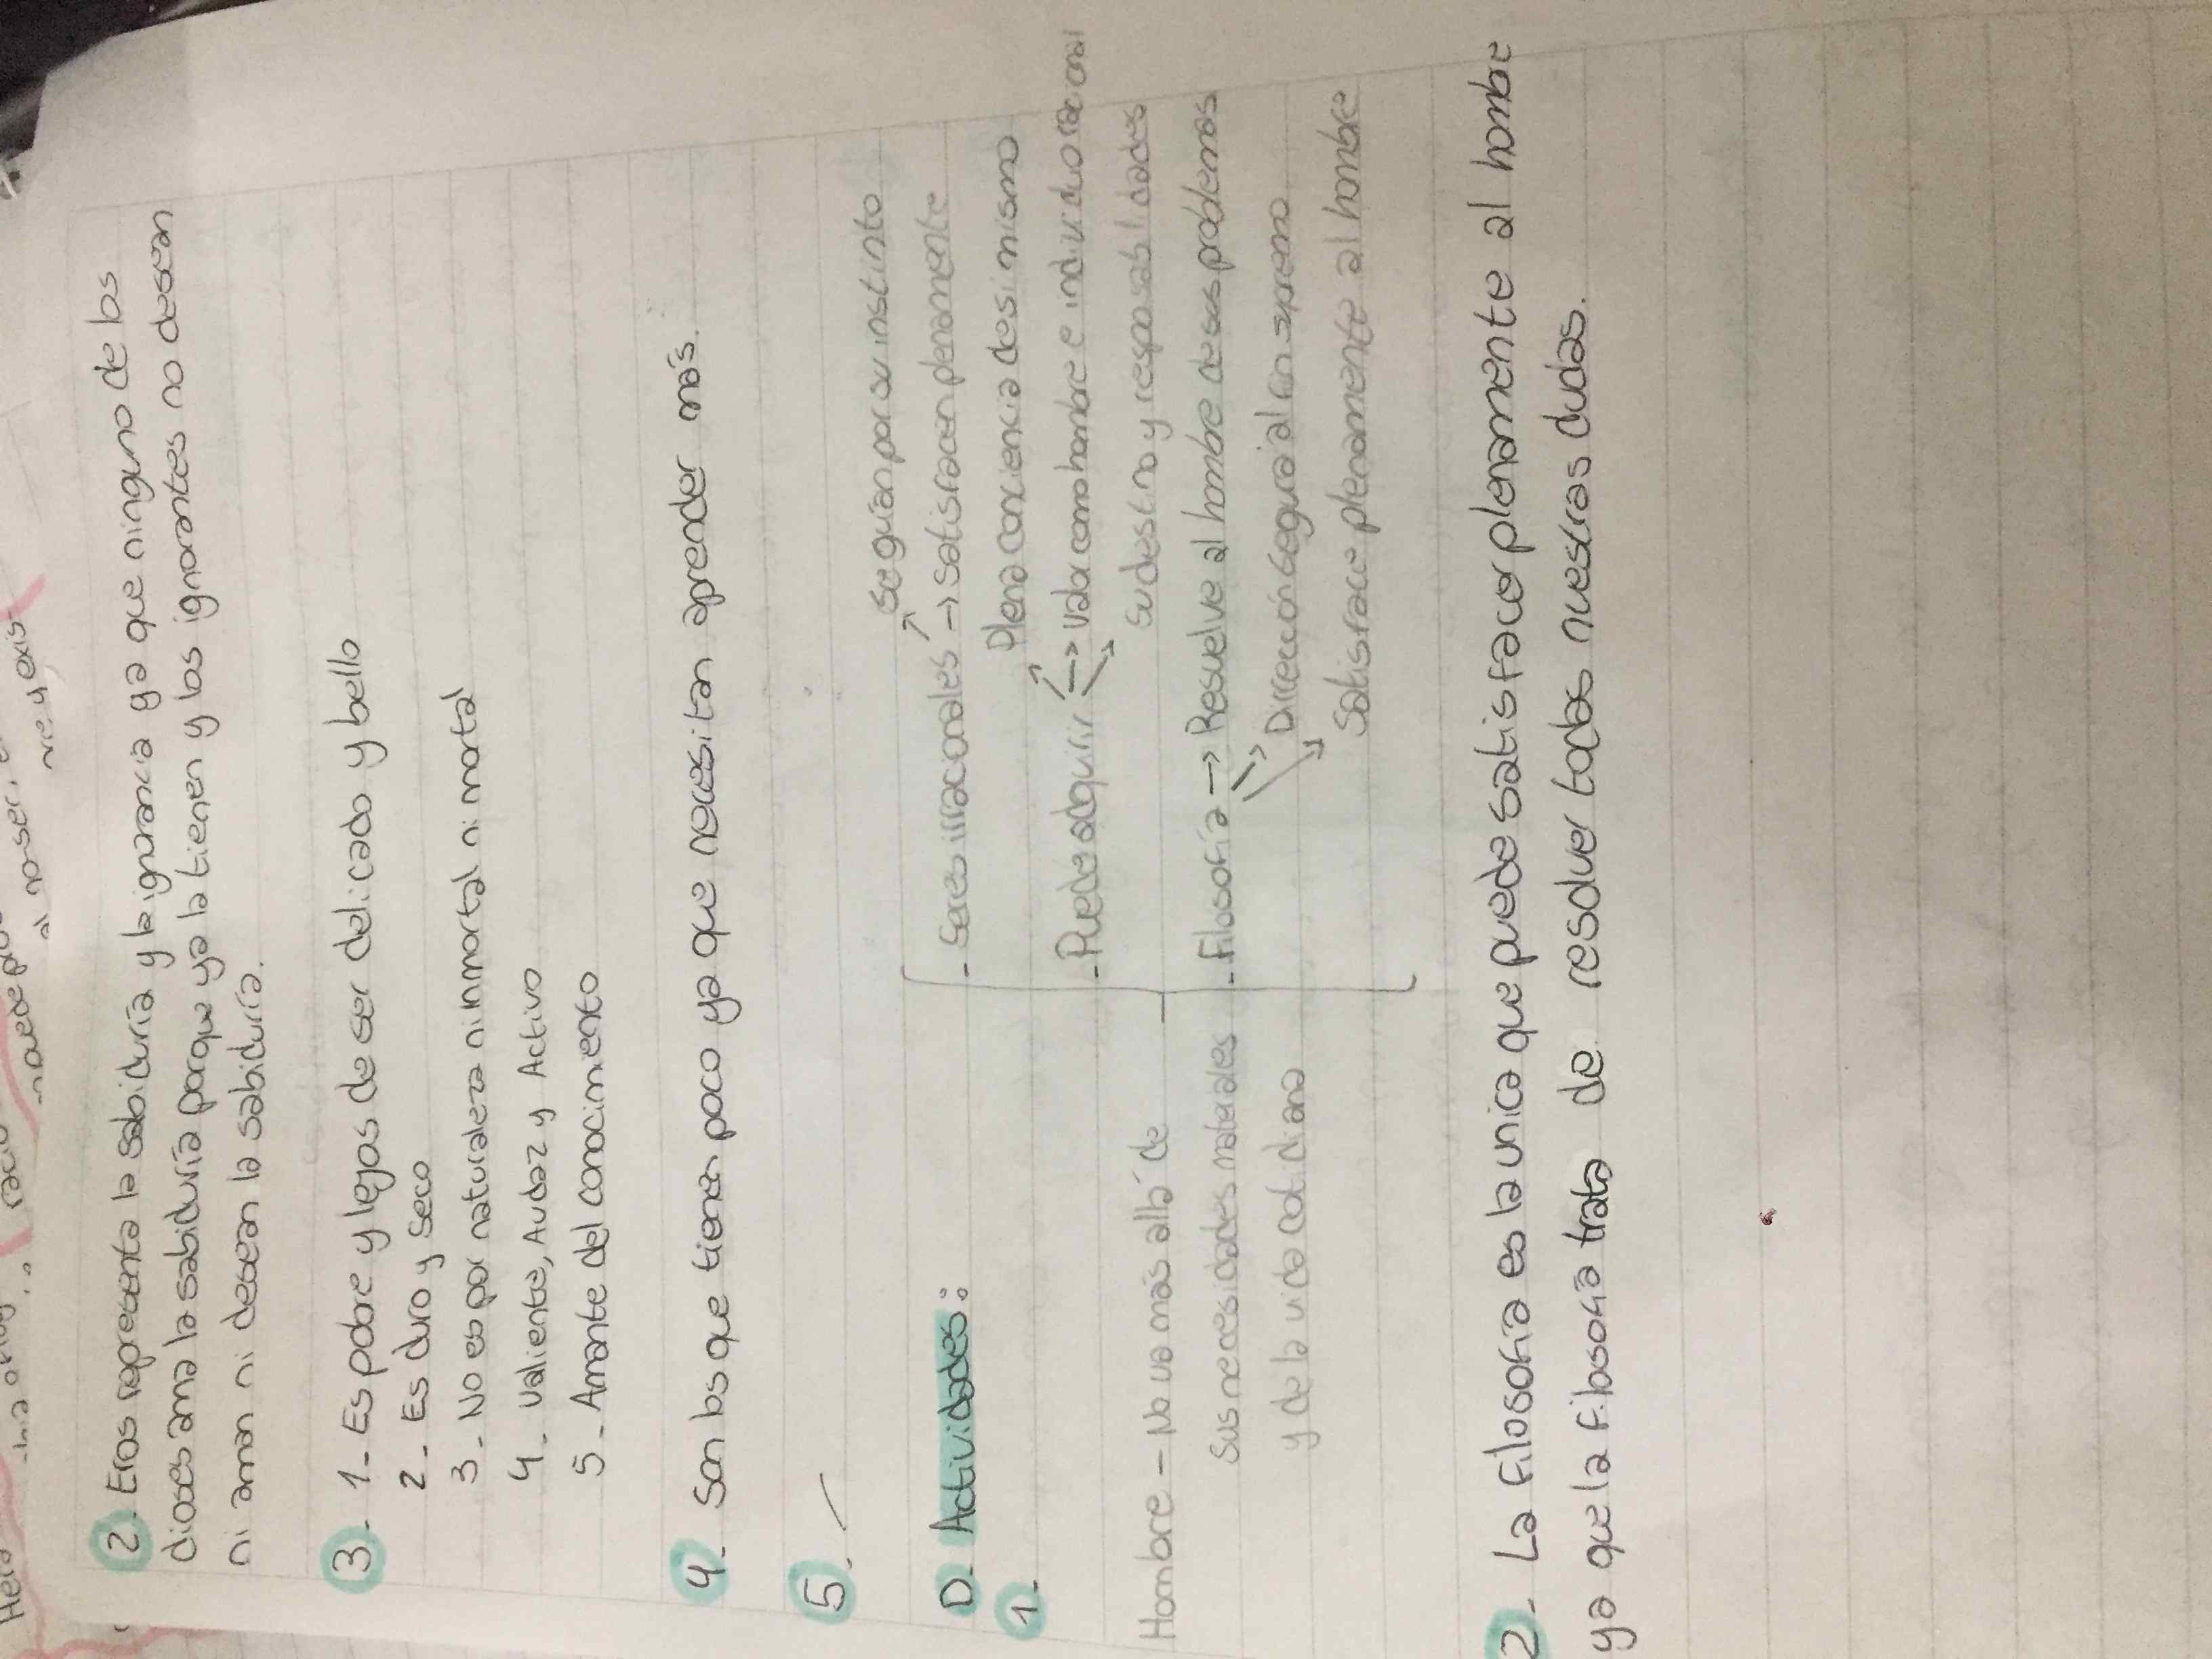 2- Eros representa la sabiduría y la ignorancia ya que ninguno de los
dioses ama la sabiduría porque ya la tienen y los ignorantes no desean
ni aman ni desean la sabiduría.
3- 1- Es pobre y lejos de ser delicado y bello
2- Es duro y seco
3- No es por naturaleza ni inmortal ni mortal
4- Valiente, Audaz y Activo
5- Amante del conocimiento
4- Son los que tienen poco ya que necesitan aprender más.
5-
D- Actividades:
1-
Hombre - No va más allá de
sus necesidades materiales
y de la vida cotidiana
- Seres irracionales → Se guían por su instinto
→ Satisfacen plenamente
- Puede adquirir → Plena conciencia de si mismo
→ Valor como hombre e individuo racional
→ Su destino y resposabilidades
- Filosofía → Resuelve al hombre de sus problemas
→ Dirección segura al fin supremo
→ Satisface plenamente al hombre
2- La filosofía es la unica que puede satisfacer plenamente al hombre
ya que la filosofía trata de resolver todas nuestras dudas.